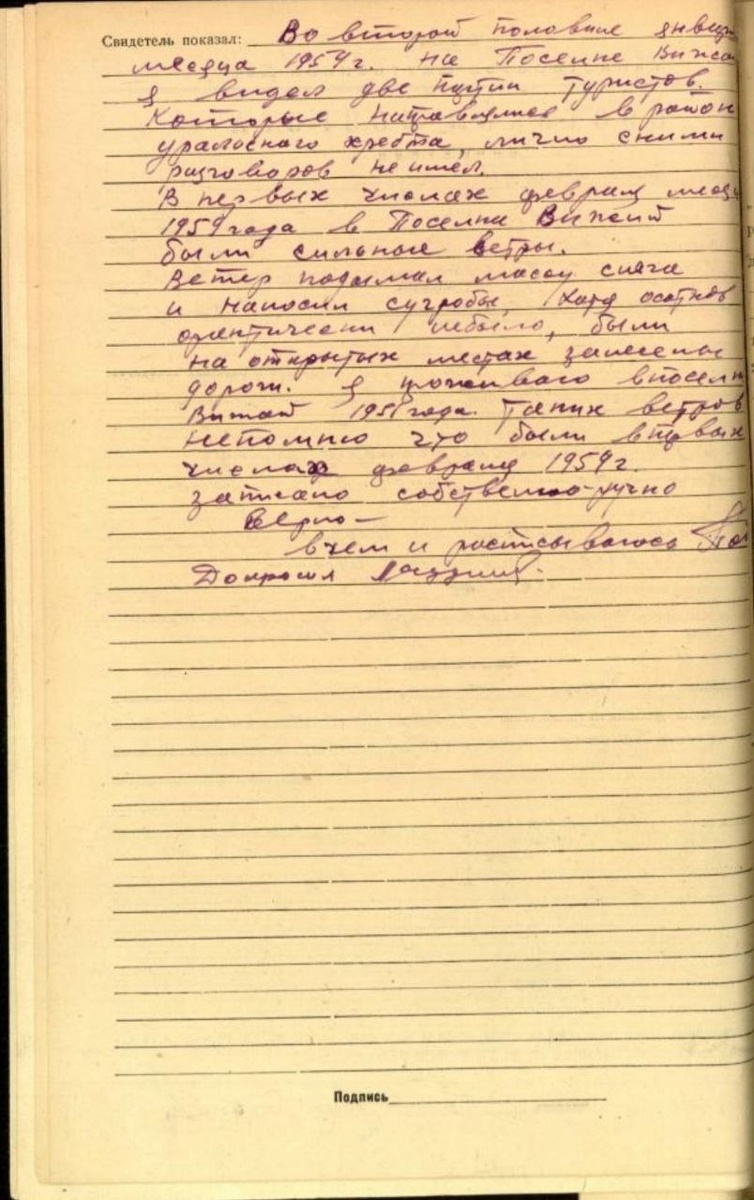 Свидетель показал: Во второй половине январ
месяца 1959 г. на Поселке Вижа
я видел две групи туристов.
Которые направлялись в район
уральского хребта, лично сними
разговоров не имел.
В первых числах февраля меся
1959 года в Поселки Вижай
были сильные ветры.
Ветер подымал массу снега
и наносил сугробы, хотя осадков
практически небыло, были
на открытых местах занесены
дороги. я проживаю впоселк
Вижай 1951 года. Таких ветров
непомню что были впервых
числах февраля 1959 г.
записано собственно-ручно
верно –
вчем и расписываюсь
Допросил
Подпись